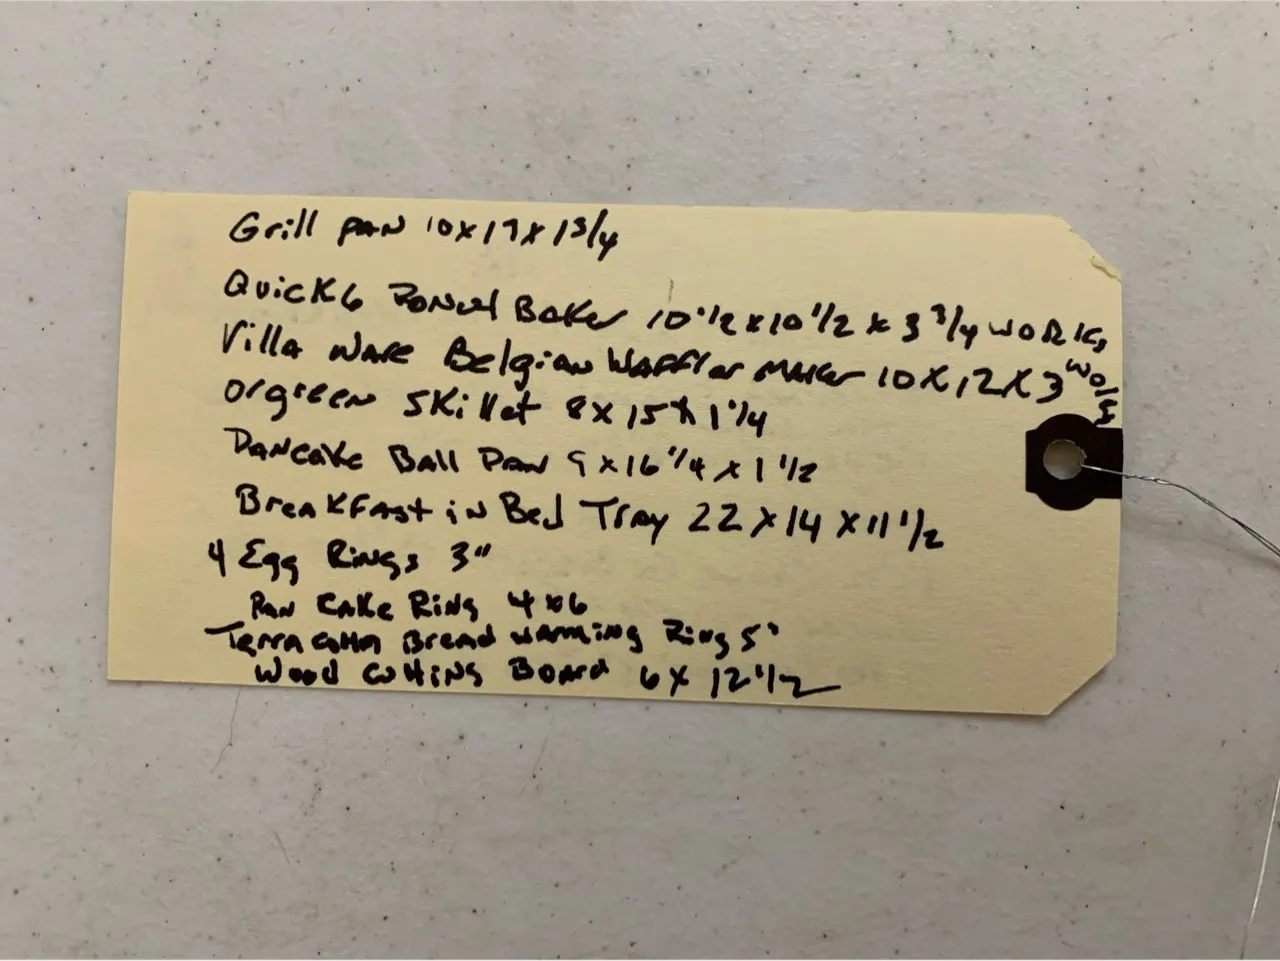 Grill Pan 10x17x1 3/4
Quick 6 Donut Baker 10 1/2 x 10 1/2 x 3 3/4 works
Villa Ware Belgian Waffler Maker 10 x 12 x 3 works
orgreen Skillet 8 x 15 x 1 1/4
Pancake Ball Pan 9 x 16 1/4 x 1 1/2
Breakfast in Bed Tray 22 x 14 x 11 1/2
4 Egg Rings 3"
Pan Cake Ring 4x6
Terracotta Bread warming Ring 5"
Wood Cutting Board 6 x 12 1/2